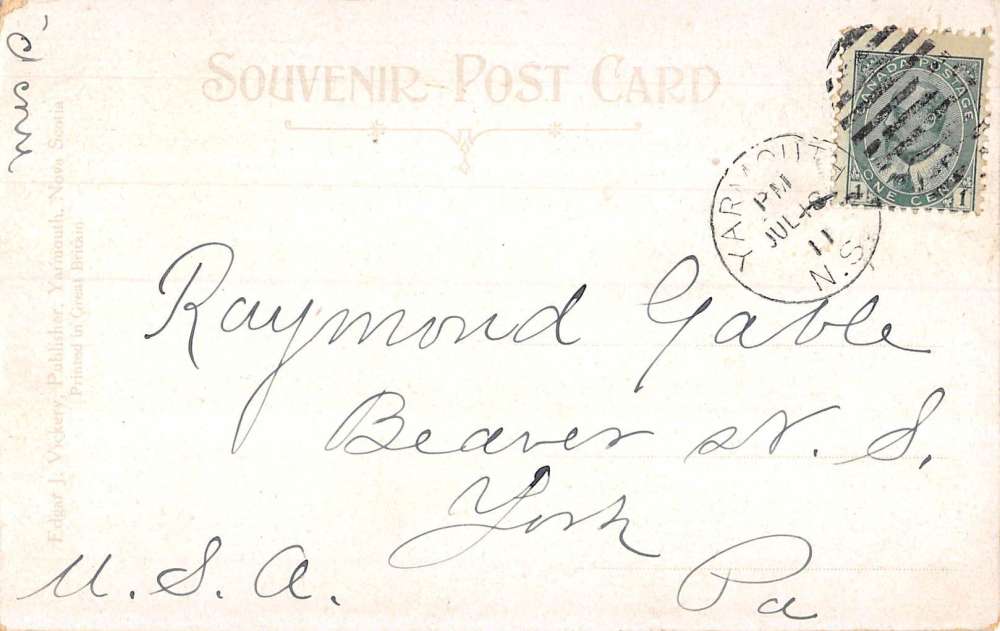 SOUVENIR POST CARD
CANADA POSTAGE
ONE CENT
1 1
YARMOUTH
PM
JUL 18
11
N.S.
Raymond Gable
Beaver st. S.
York
Pa
U.S.A.
Edgar J. Vickery, Publisher, Yarmouth, Nova Scotia
Printed in Great Britain